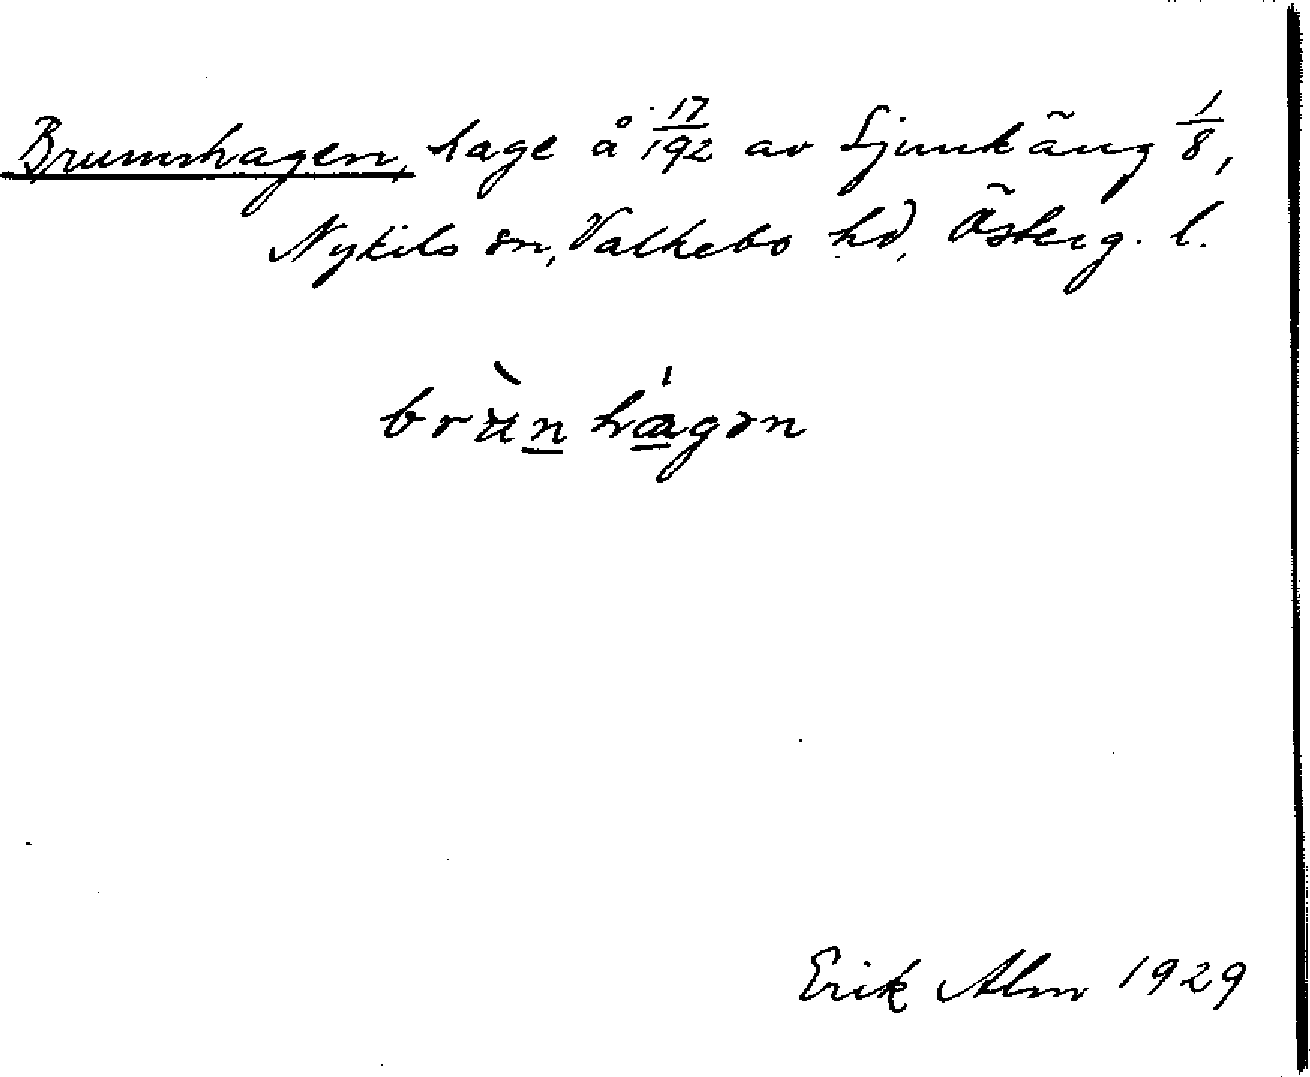 Brunnshagen, hage å 17/192 av Ljunkäng 1/8,
Nykils sn, Valkebo hd, Österg. l.
brùn hágən
Erik Alm 1929